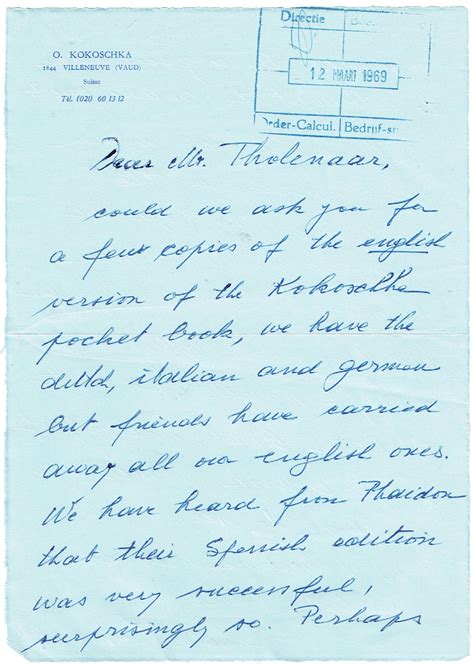 O. KOKOSCHKA
1844 VILLENEUVE (VAUD)
Suisse
Tél. (021) 60 13 12
Directie
12 MAART 1969
Order-Calcul. Bedrijf-s
Dear Mr. Tholenaar,
could we ask you for
a few copies of the english
version of the Kokoschka
pocket book, we have the
dutch, italian and german
but friends have carried
away all our english ones.
We have heard from Phaidon
that their Spanish edition
was very successful,
surprisingly so. Perhaps